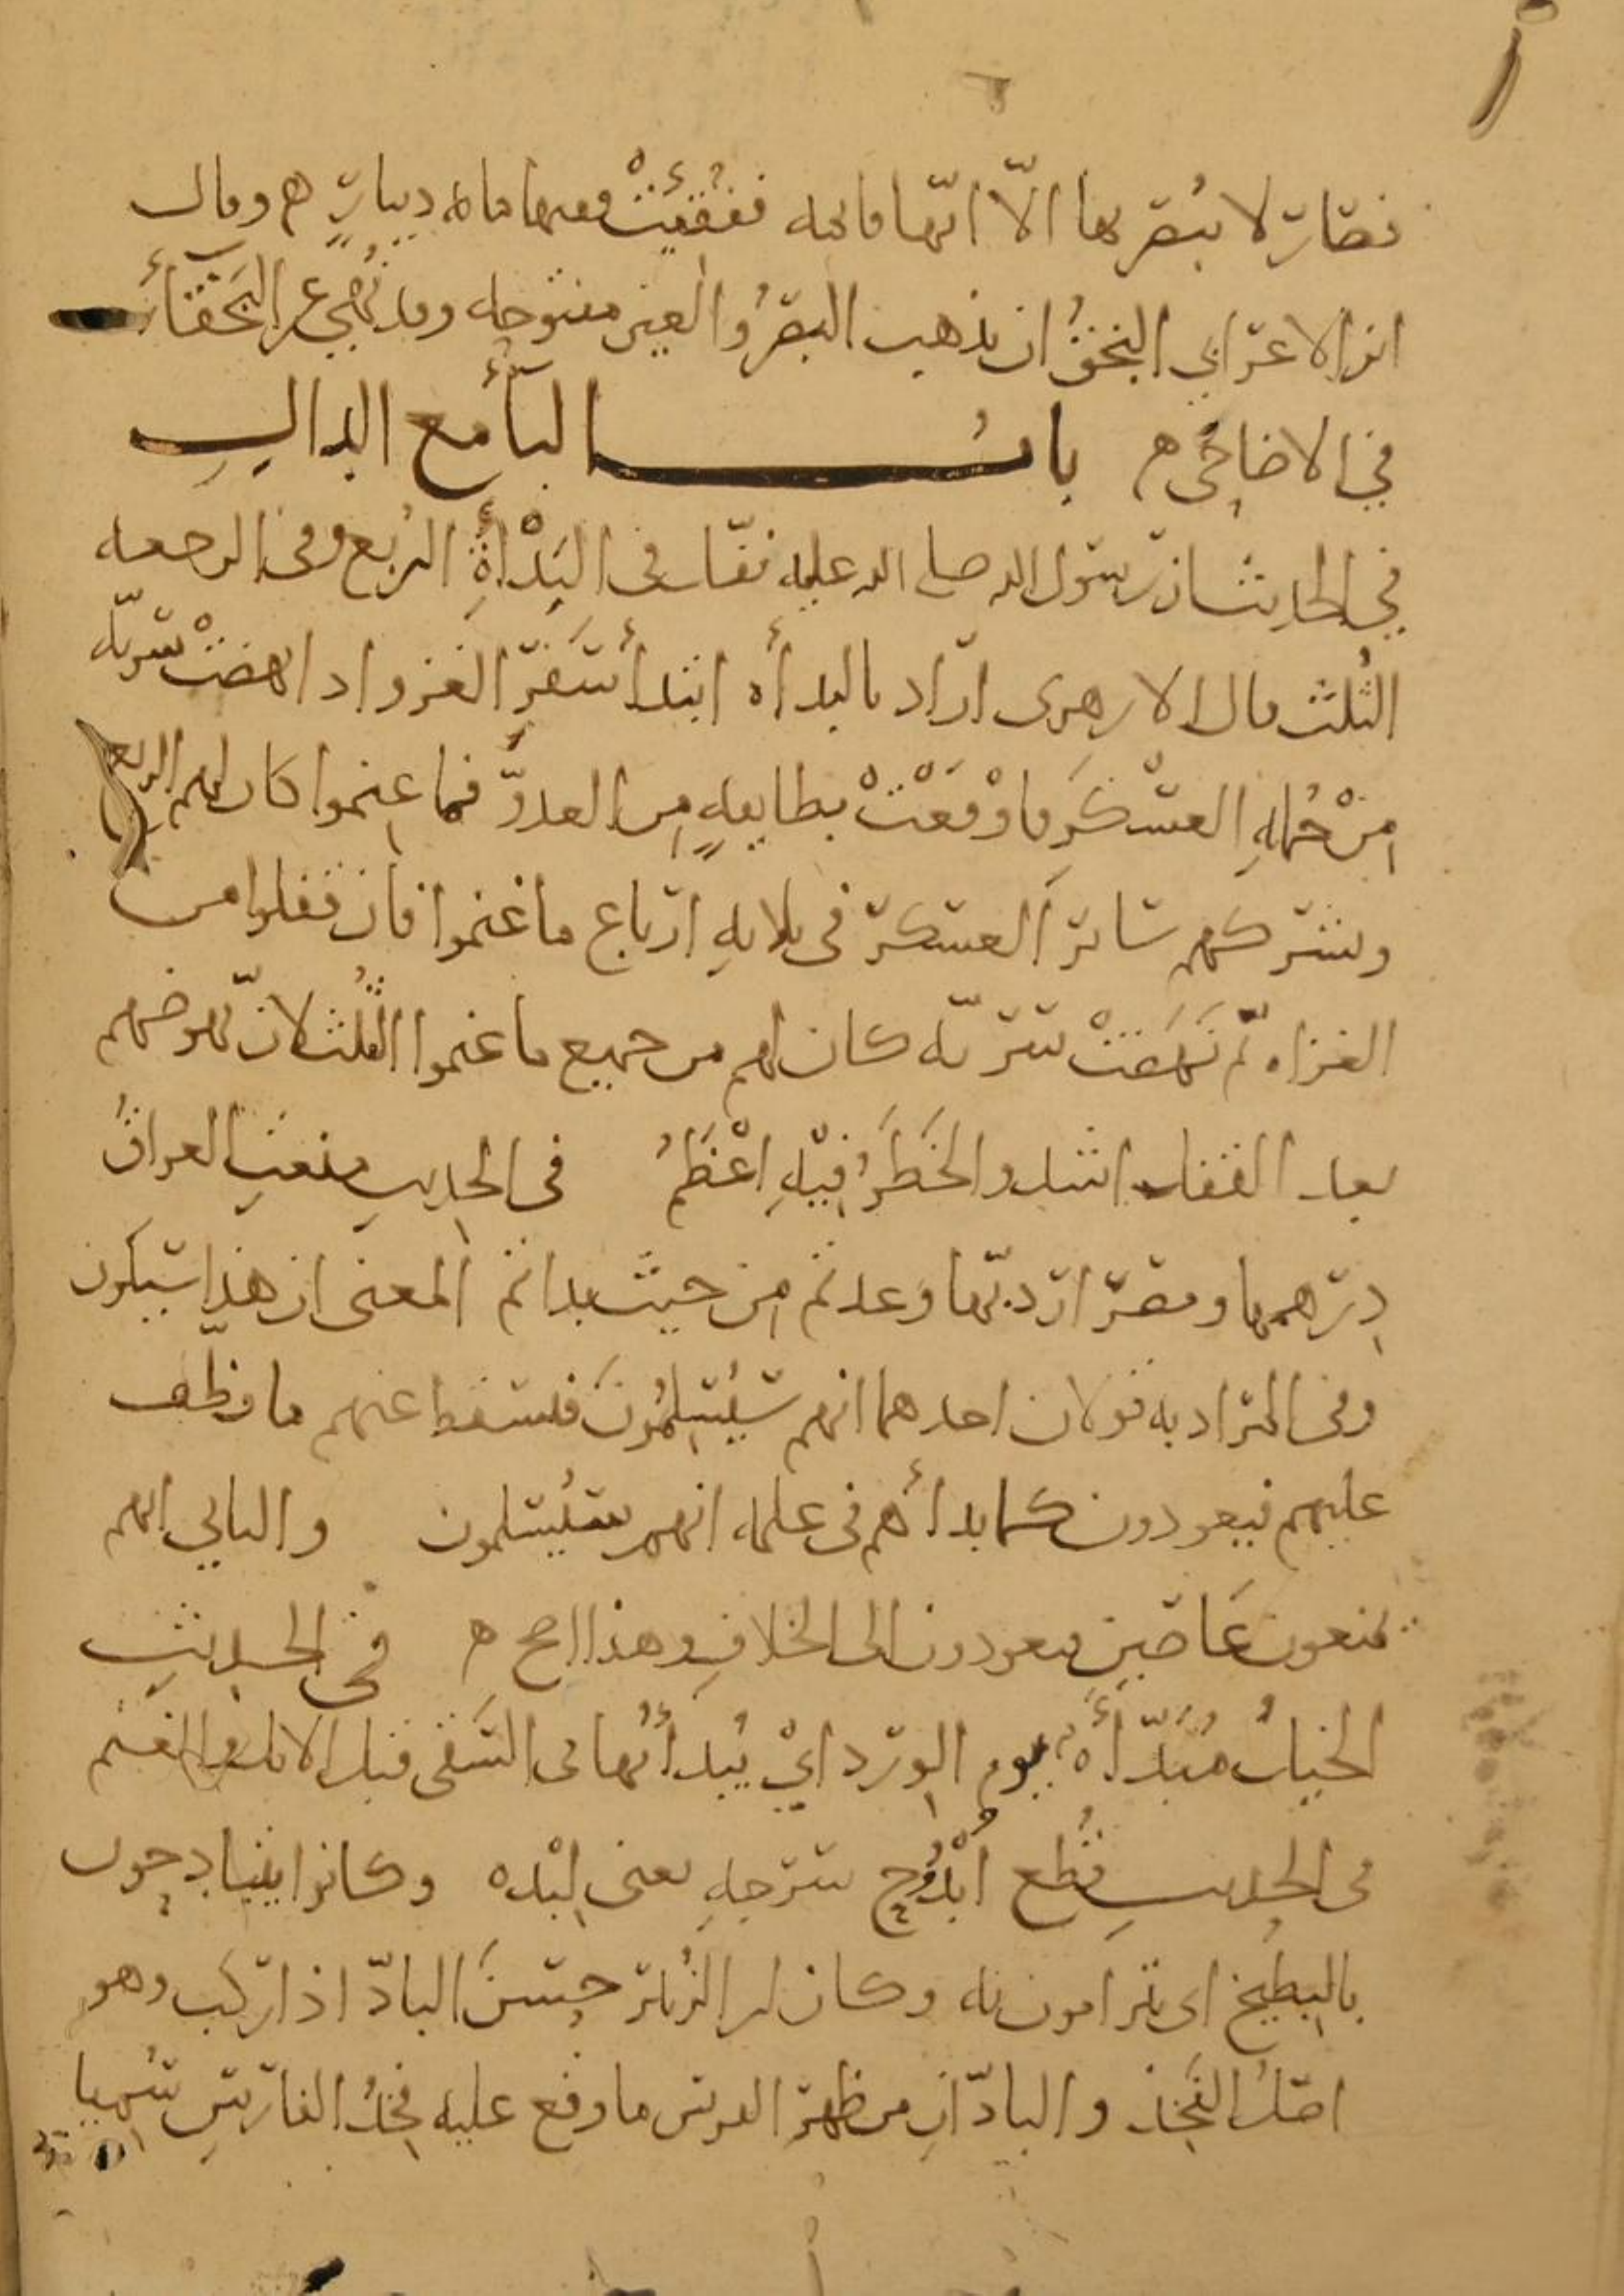 فصارت لا يبصر بها الّا انّها قائمه ففُقِئَتْ ففيها مائه دينارٍ ه وقال
ابن الاعرابي البخقُ ان يذهب البصرُ والعين مفتوحه وقد نُهِي عن البَخْقَاءِ
في الاضاحي ه بابُ البآء مع الدالِ
في الحديث ان رسول الله صلى الله عليه نفّل في البَدْأَةِ الربُع وفي الرجعه
الثُلث قال الازهرى اراد بالبدأه ابتدأ سَفَرِ الغزو اذا نهضتْ سريّه
مِنْ جُملهِ العسْكَرِ فاوْقَعَتْ بطايفهٍ مِن العدوّ فما غنموا كان لهم الربع
ويشركهم سائرُ العسكر في ثلاثهِ ارباع ما غنموا فان قفلوا من
الغزاه ثم نَهَضَتْ سريّه كان لهم من جميع ما غنموا الثُلث لانّ نهوضهم
بعد القفل اشد والخَطَرُ فِيْهِ اعْظَمُ في الحديث منعتِ العراقُ
دِرهمها ومصر اردبّها وعدتم مِن حيث بدأتم المعنى ان هذا سيكون
وفي المراد به قولان احدهما انهم سَيُسْلِمُونَ فيسقط عنهم ما وظف
عليهم فيعودون كما بدأهم في علمه انهم سيُسلمون والثاني انهم
يمنعون عَاصين فيعودون الى الخلافِ وهذا اصح ه في الحديثِ
الخيلُ مُبَدَّأَهٌ يوم الوِرد ايْ يُبدأُ بها في السَقى قبل الابل والغنم
في الحديثِ قُطع أُبْدُوْج سرجهِ يعني لِبْده وكانوا يتبادحون
بالبطِيخ اى يترامون به وكان ابن الزُبير حسنَ البادّ اذا ركب وهو
اصلُ الفَخِذ والبادّانِ من ظهر الفرس ما وقع عليه فخِذُ الفارسِ سُمِيا